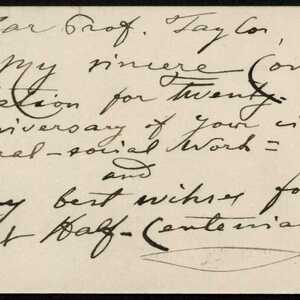 ar Prof. Taylor,
My sincere Con
ation for Twenty-
niversary of your ci
nal-social work =
and
y best wihses fo
t Half-Centenia